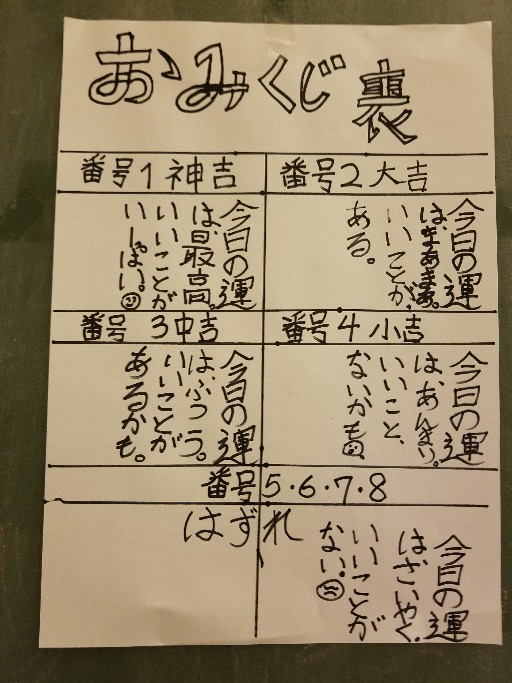 おみくじ裏
番号1神吉
今日の運
は、最高。
いいことが
いーぱい。
番号2大吉
今日の運
は、まあまあ。
いいことが、
ある。
番号3中吉
今日の運
は、ふつう。
いいことが
あるかも。
番号4小吉
今日の運
は、あんまり。
いいこと、
ないかも。
番号5・6・7・8
はずれ
今日の運
はさいやく。
いいことが
ない。